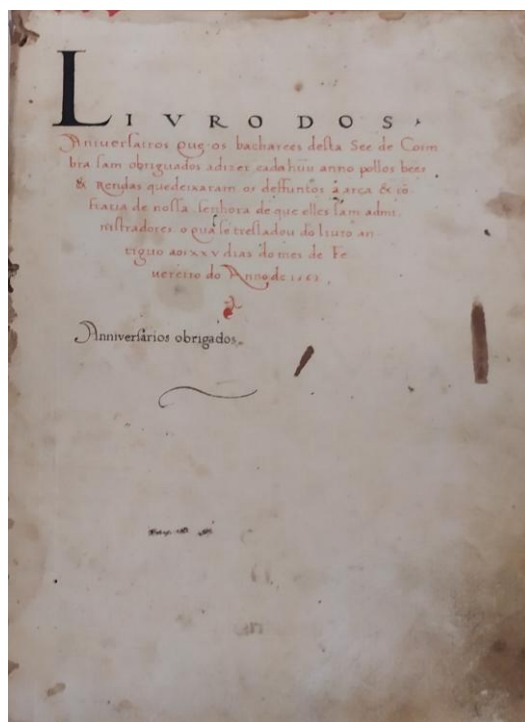 LIVRO DOS
Aniversairos que os bacharees desta See de Coim
bra sam obriguados a dizer cada huu anno pollos bees
& Rendas que deixaram os deffuntos à arca & cō
fraria de nossa senhora de que elles sam admi
nistradores o qual se tresladou do livro an
tiguo aos xxv dias do mes de Fe
vereiro do Anno de
Anniversários obrigados.